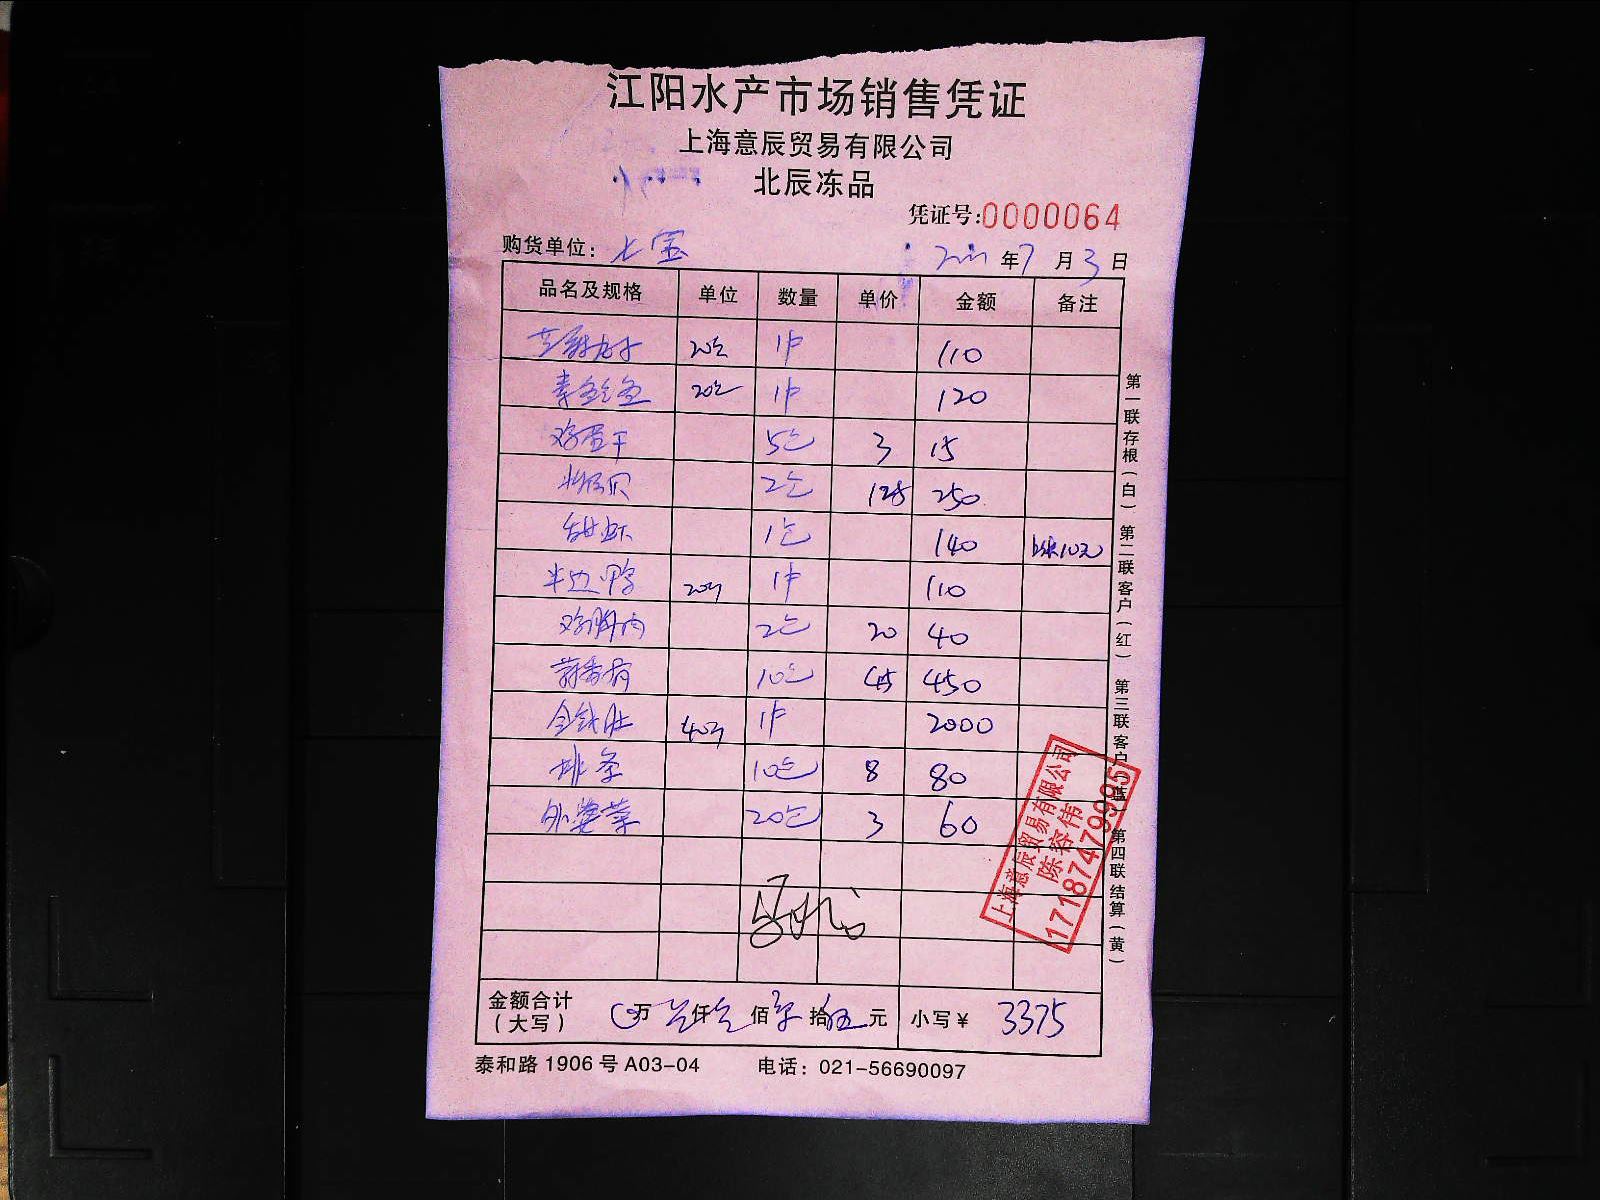 江阳水产市场销售凭证
上海意辰贸易有限公司
北辰冻品
凭证号:0000064
购货单位: 七宝
年 7 月 3 日
品名及规格 单位 数量 单价 金额 备注
1件 110
1件 120
鸡蛋干 5包 3 15
2包 125 250
甜虾 1包 140
半边鸭 1件 110
鸡脯肉 2包 20 40
10包 45 450
金钱肚 1件 2000
排条 10包 8 80
外婆菜 20包 3 60
金额合计 万 叁仟叁佰 拾伍元 小写¥ 3375
(大写)
泰和路1906号A03-04 电话: 021-56690097
第一联存根(白) 第二联客户(红) 第三联客户(蓝) 第四联结算(黄)
上海意辰贸易有限公司
陈容伟
17187479995